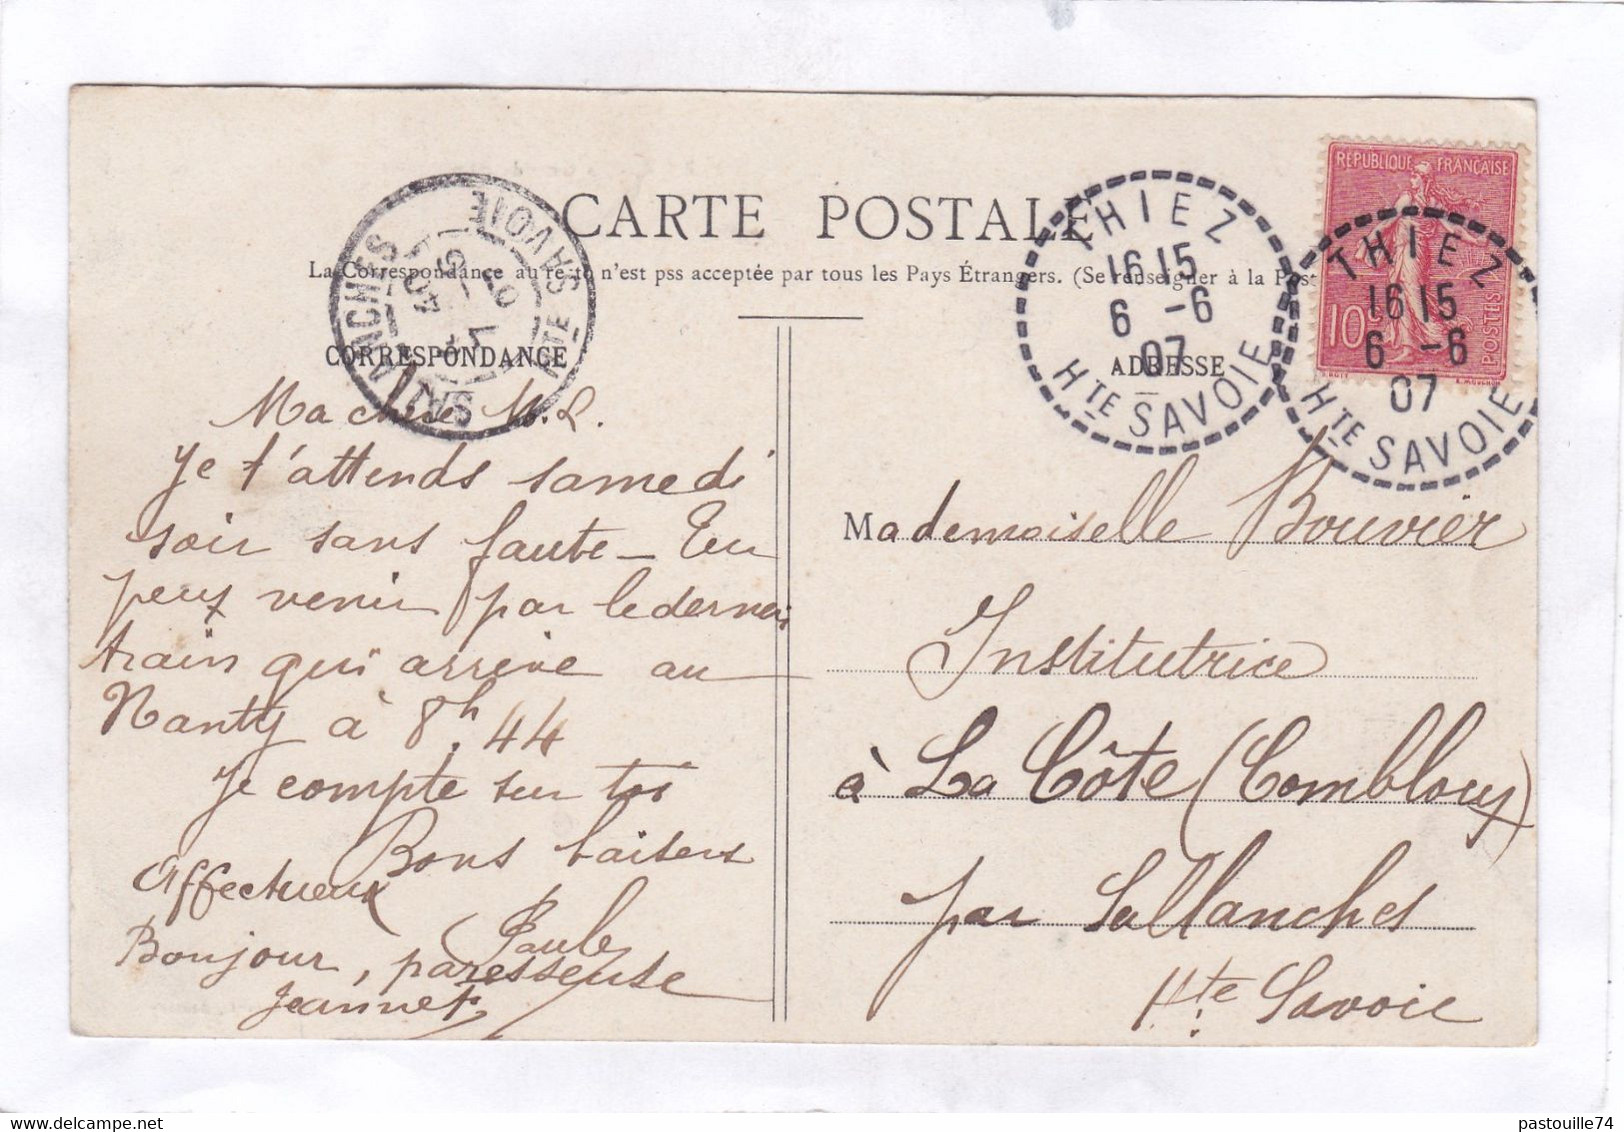 CARTE POSTALE
La Correspondance au recto n'est pss acceptée par tous les Pays Étrangers. (Se renseigner à la Pos
CORRESPONDANCE
Ma chère M.L.
Je t'attends samedi
soir sans faute – Tu
peux venir par le dernier
train qui arrive au
Nanty à 8h.44
Je compte sur toi
Bons baisers
Paule
Affectueux
Bonjour, paresseuse
Jeannet
ADRESSE
Mademoiselle Bouvier
Institutrice
à La Côte (Combloux)
par Sallanches
Hte Savoie
THIEZ
16 15
6 -6
07
HTE SAVOIE
THIEZ
16 15
6 -6
07
HTE SAVOIE
RÉPUBLIQUE FRANÇAISE
10c
POSTES
SALLANCHES
HTE SAVOIE
07
pastouille74